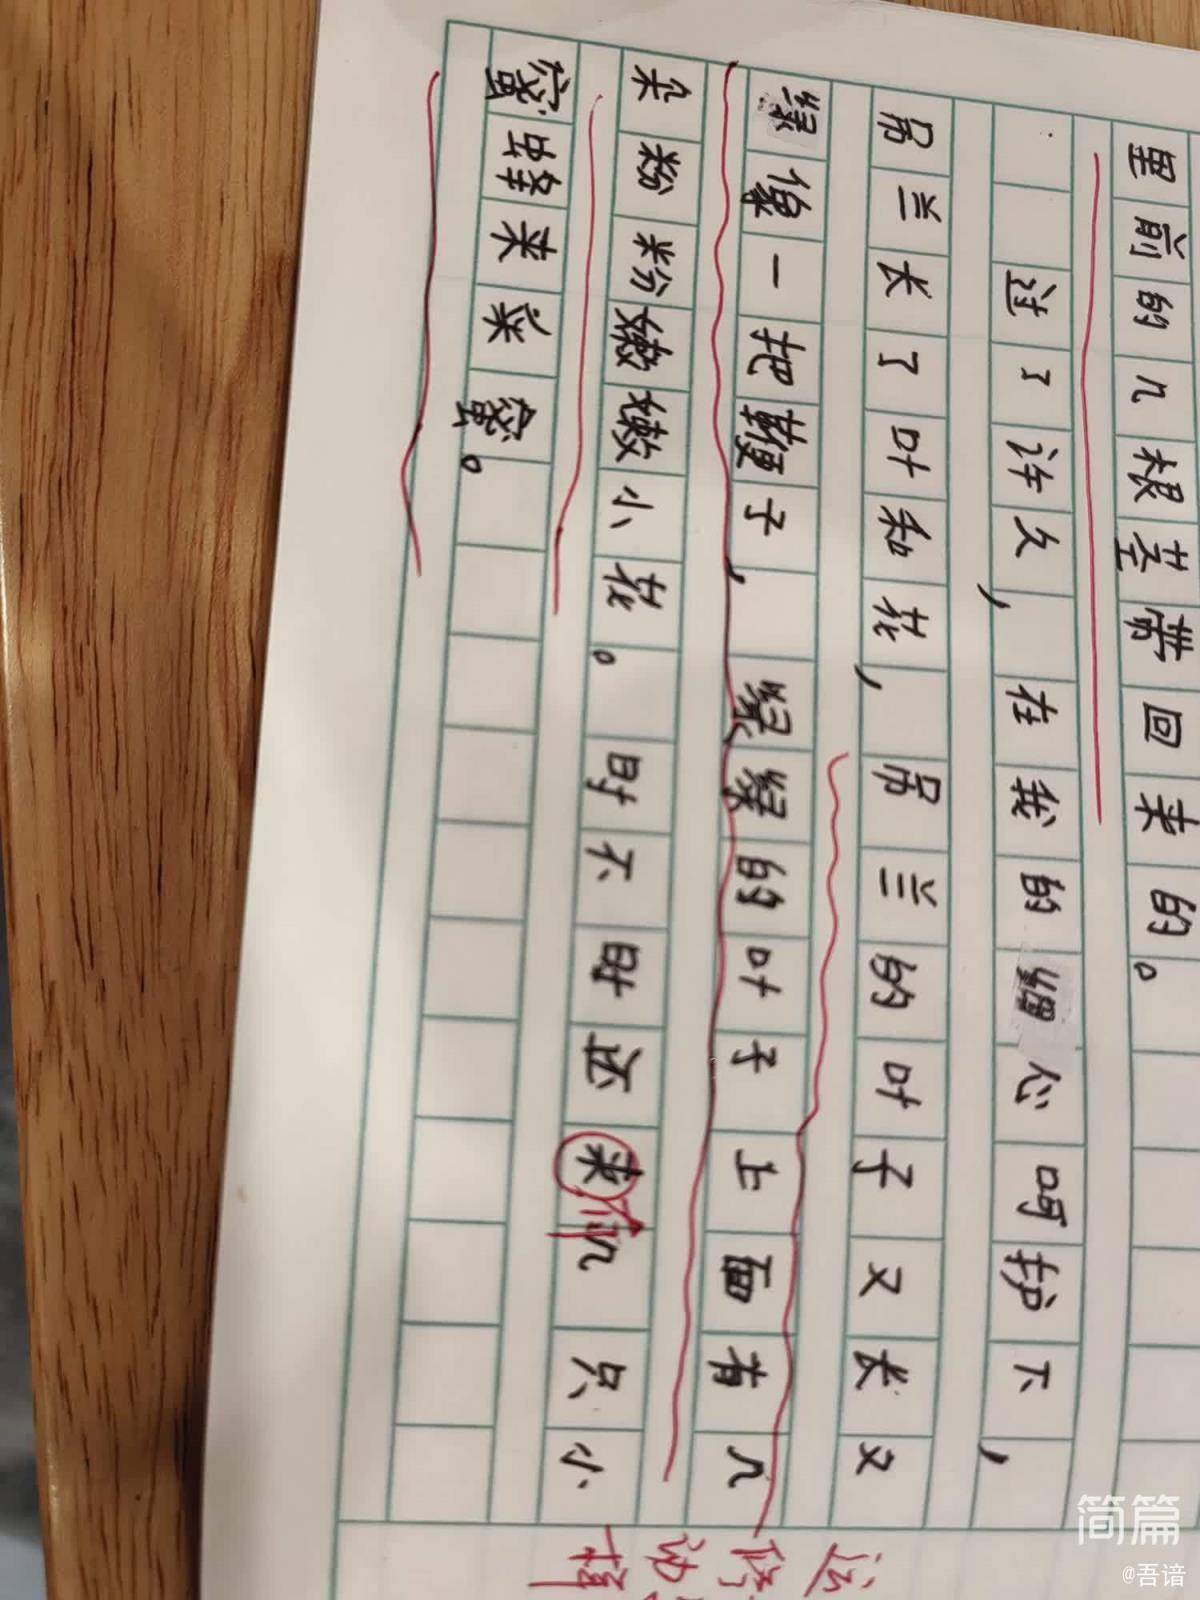 里前的几根茎带回来的。
过了许久，在我的细心呵护下，
吊兰长了叶和花，吊兰的叶子又长又
绿像一把鞭子，绿绿的叶子上面有几
朵粉粉嫩嫩小花。时不时还来几只小
蜜蜂来采蜜。
简篇
@吾谙